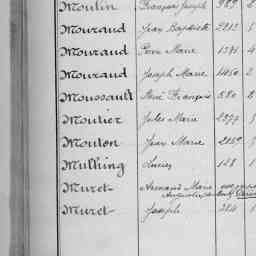 Moulin François Joseph 989 2
Mouraud Jean Baptiste 2213
Mouraud Pierre Marie 1391
Mouraud Joseph Marie 1450 2
Moussault René François 880
Moutier Jules Marie 2974
Mouton Jean Marie
Mulhing Lucien 128 1
Muret Armand Marie
Muret Joseph 284 1